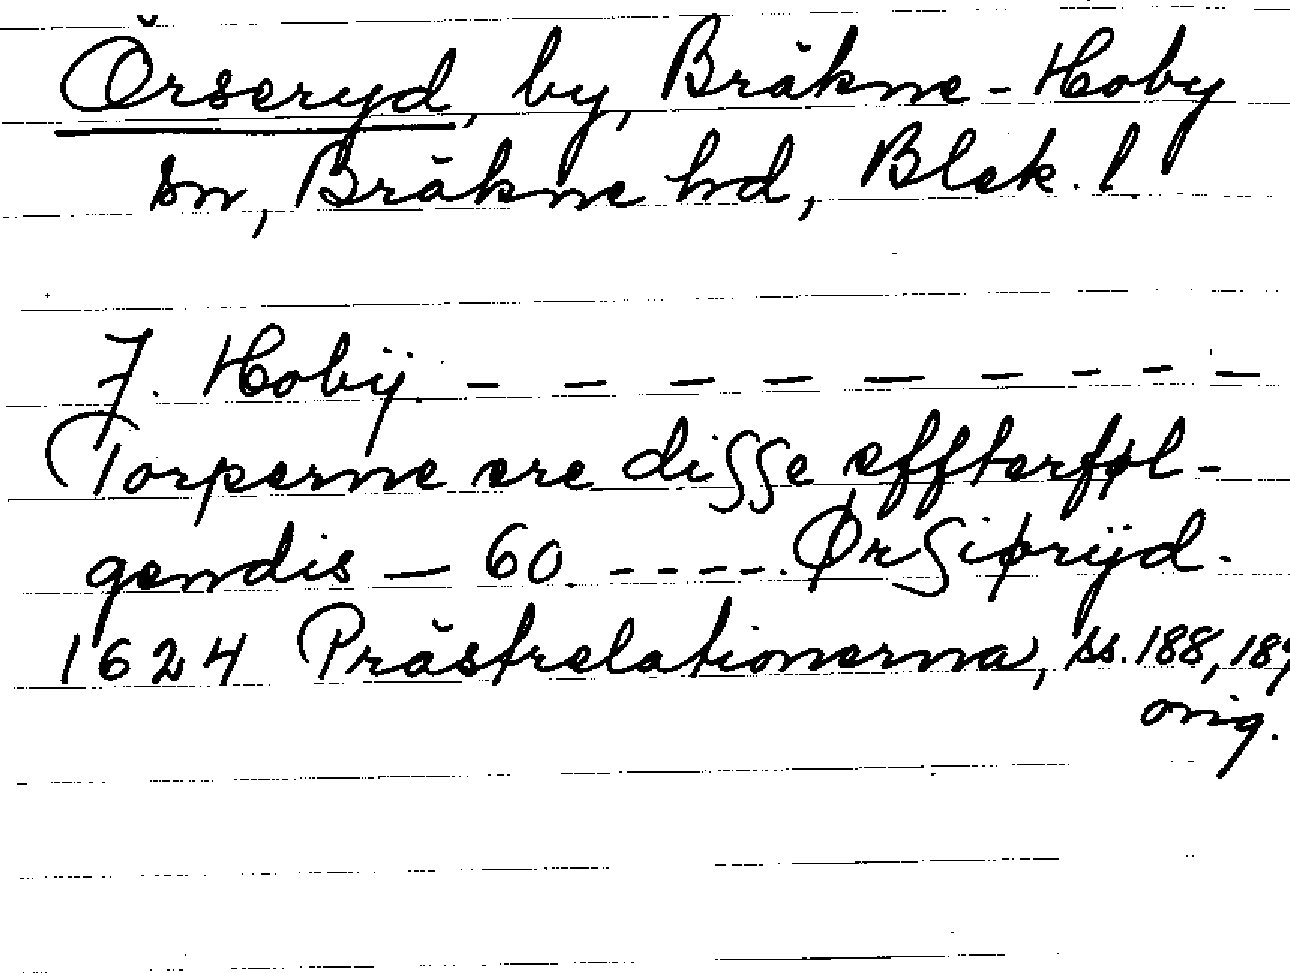 Örseryd, by, Bräkne-Hoby
sn, Bräkne hd, Blek. l.
J. Hobÿ. – – – – – – – – –
Torperne ere diſſe effterføl-
gendis – 60. - - - - -. Ørſiørÿd.
1624 Prästrelationerna, ss. 188, 189
orig.